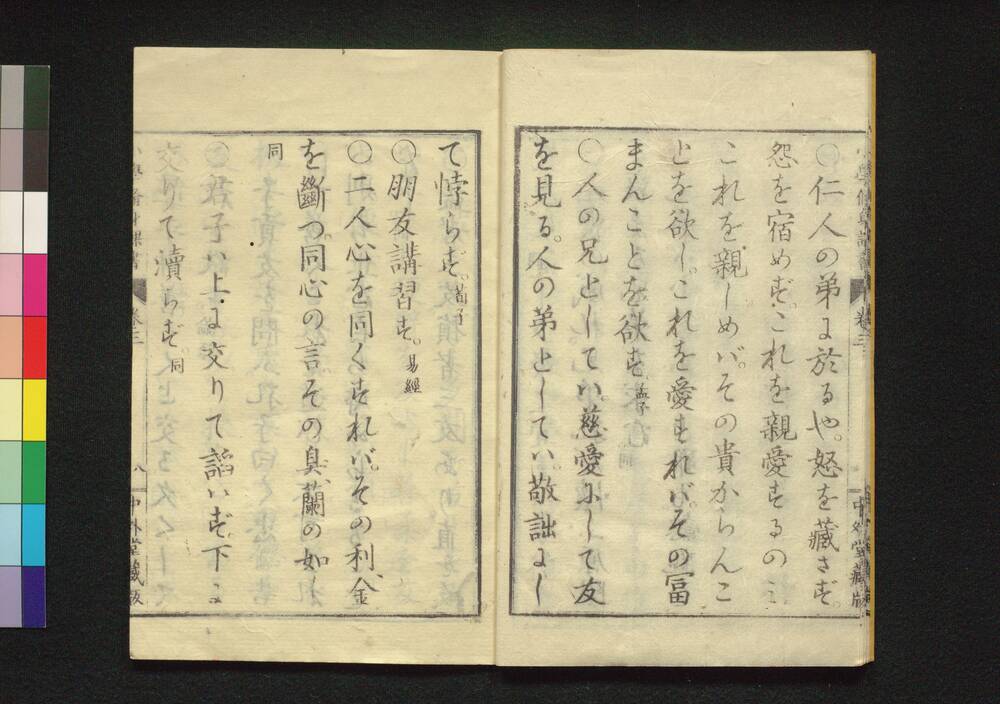 〇仁人の弟に於るや。怒を藏さず。
怨を宿めず。これを親愛するのミ
これを親しめバ。その貴からんこ
とを欲し。これを愛すれバ。その冨
まんことを欲す。孟子
〇人の兄としてハ。慈愛にして友
を見る。人の弟としてハ。敬詘にし
中外堂藏版
て悖らず。荀子
〇朋友講習す。易經
〇二人心を同くすれバ。その利金
を斷つ。同心の言その臭蘭の如し
同
〇君子ハ上に交りて諂ハず。下に
交りて瀆らず。同
卷三
八
中外堂藏版